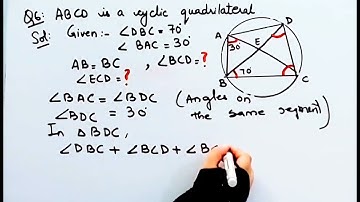 Q6: ABCD is a cyclic quadrilateral
Sol: Given:- ∠DBC = 70°
∠BAC = 30°
AB = BC , ∠BCD = ?
∠ECD = ?
∠BAC = ∠BDC (Angles on
∠BDC = 30° the same segment)
In △BDC,
∠DBC + ∠BCD + ∠B
A
D
30°
E
70°
B
C